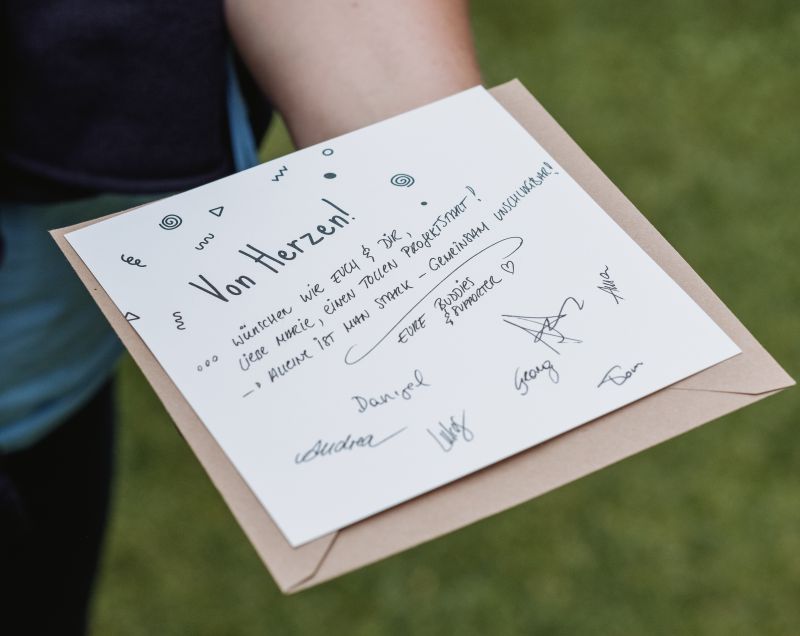 Von Herzen!
... WÜNSCHEN WIR EUCH & DIR,
LIEBE MARIE, EINEN TOLLEN PROJEKTSTART!
-> ALLEINE IST MAN STARK - GEMEINSAM UNSCHLAGBAR!
EURE BUDDIES
& SUPPORTER ♡
Daniel
Georg
Tom
Andrea